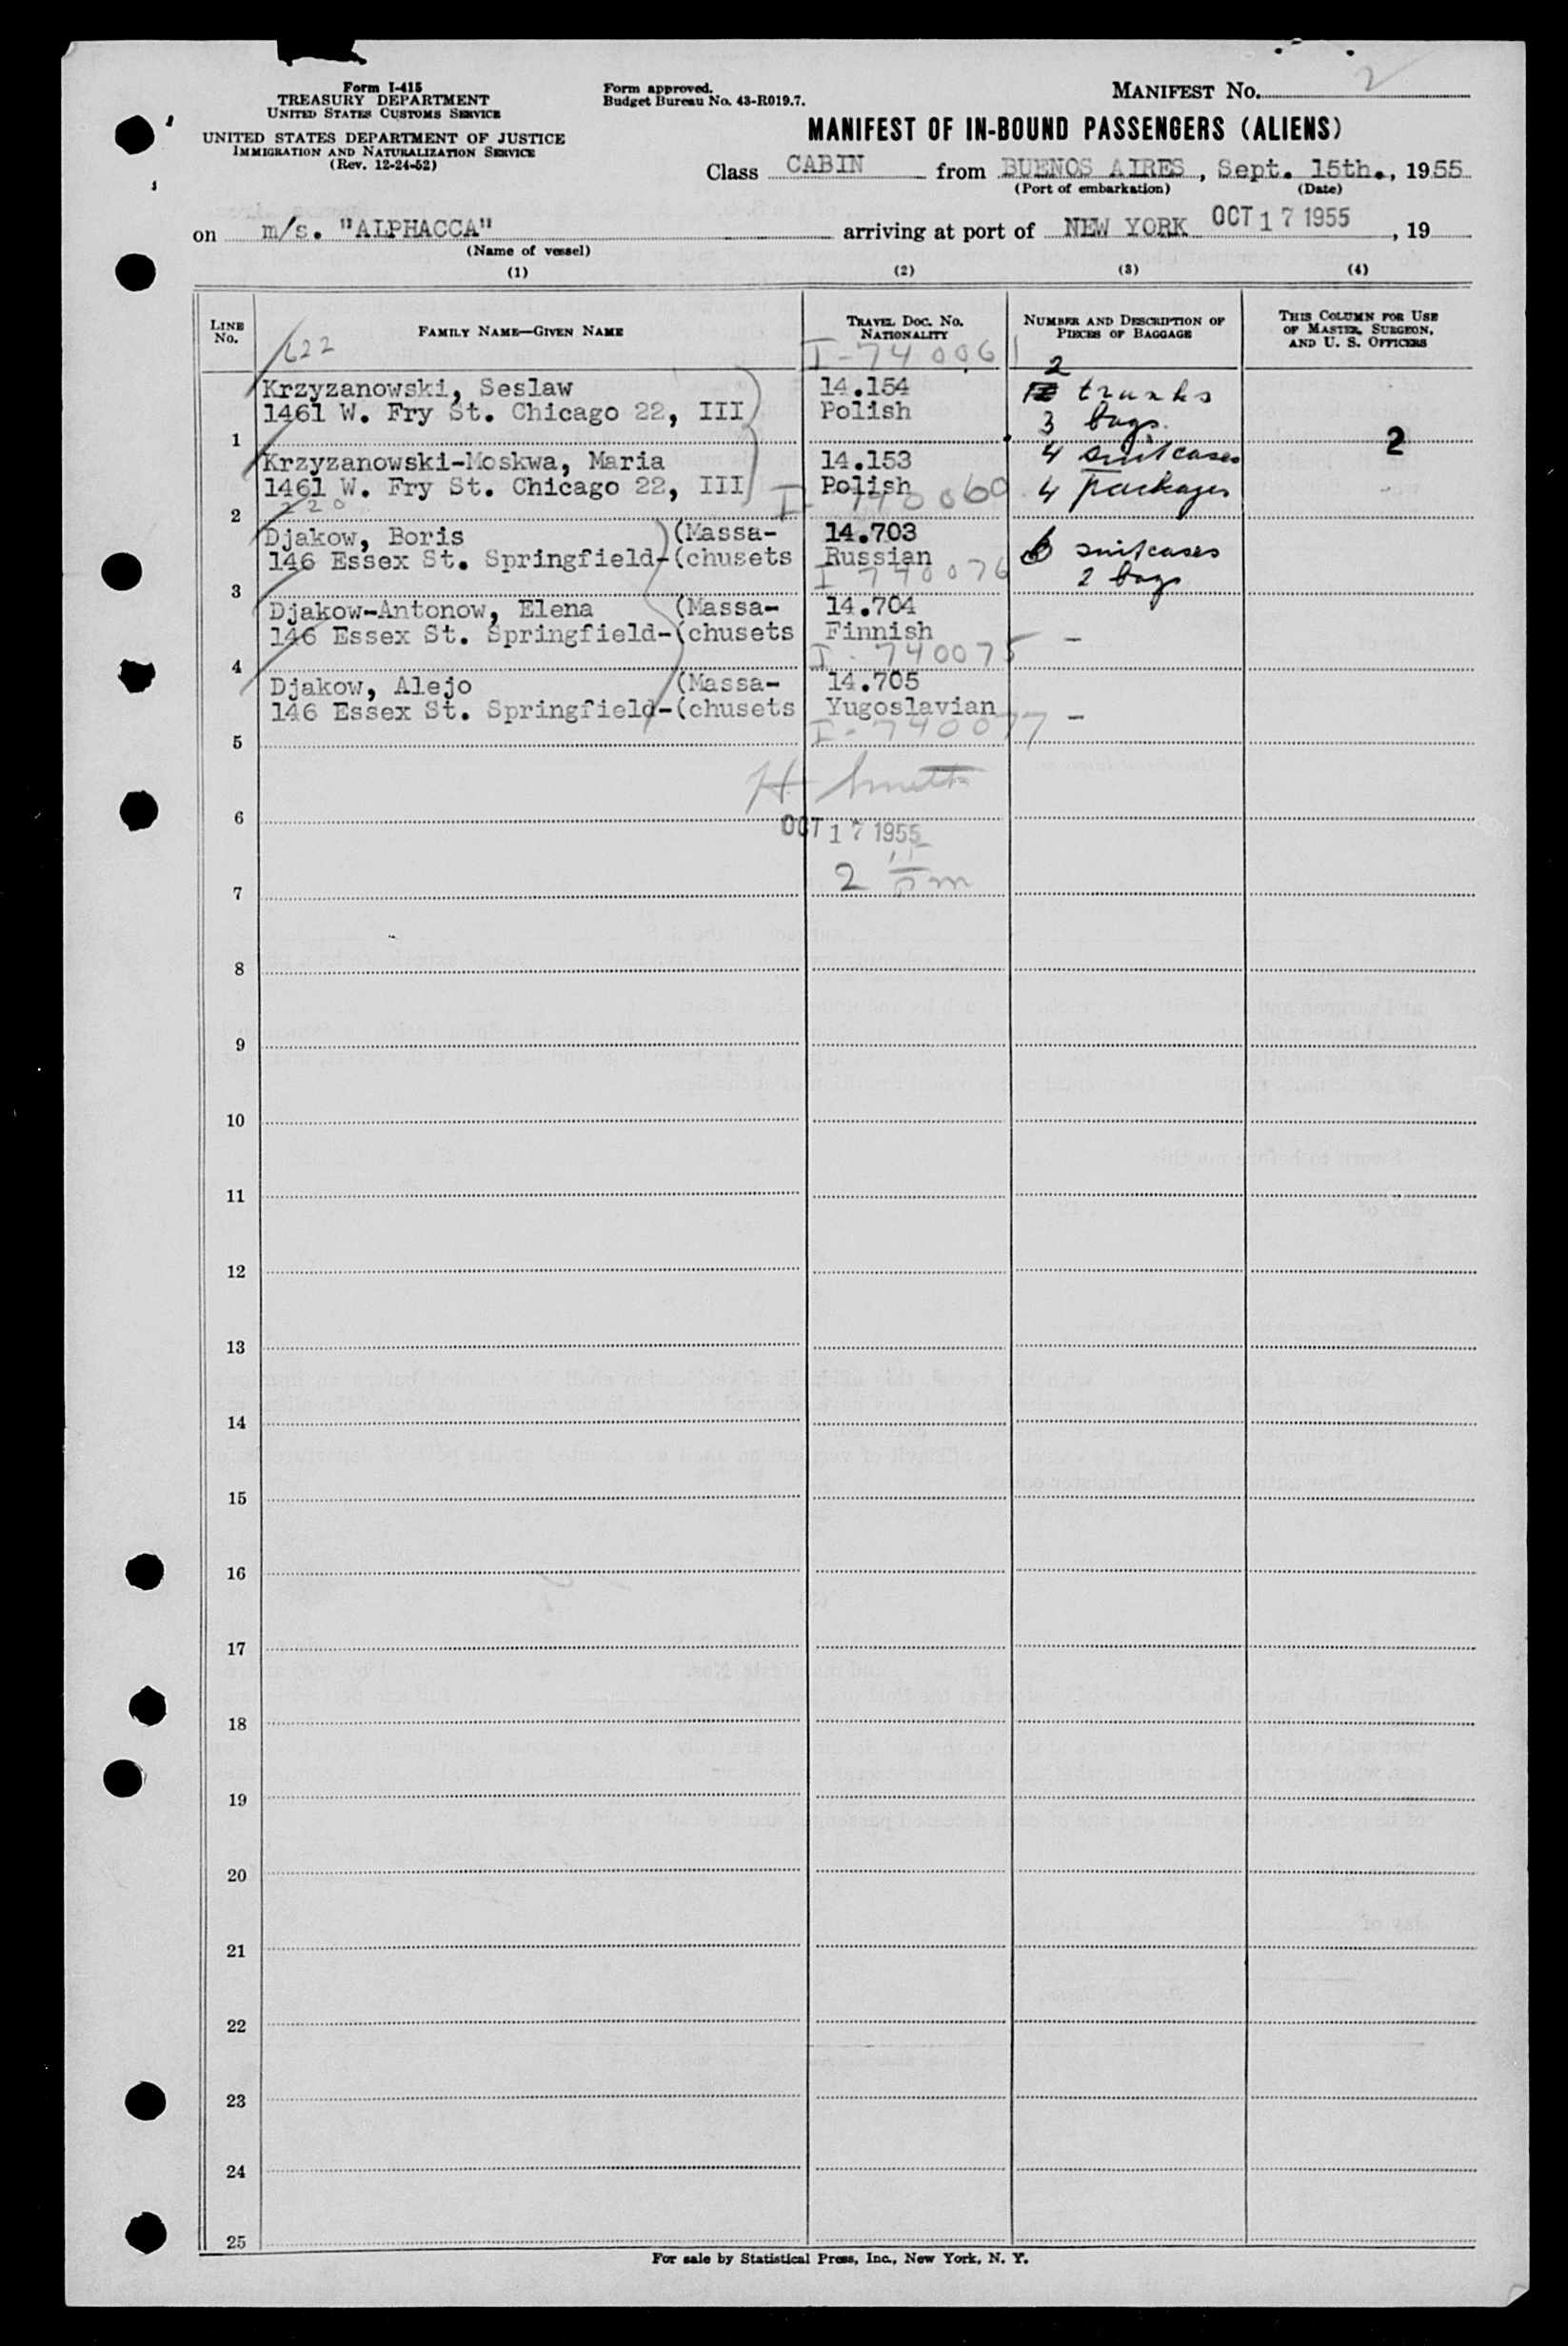 Form I-415
TREASURY DEPARTMENT
UNITED STATES CUSTOMS SERVICE
UNITED STATES DEPARTMENT OF JUSTICE
IMMIGRATION AND NATURALIZATION SERVICE
(Rev. 12-24-52)
Form approved.
Budget Bureau No. 43-R019.7.
MANIFEST NO. 2
MANIFEST OF IN-BOUND PASSENGERS (ALIENS)
Class CABIN from BUENOS AIRES, Sept. 15th., 1955
(Port of embarkation) (Date)
on m/s. "ALPHACCA" arriving at port of NEW YORK OCT 17 1955, 19
(Name of vessel)
(1) (2) (3) (4)
LINE No. FAMILY NAME—GIVEN NAME TRAVEL DOC. NO. NATIONALITY NUMBER AND DESCRIPTION OF PIECES OF BAGGAGE THIS COLUMN FOR USE OF MASTER, SURGEON, AND U. S. OFFICERS
622 I-740061
Krzyzanowski, Seslaw 14.154 2 trunks
1461 W. Fry St. Chicago 22, III Polish 3 bags.
1 2
Krzyzanowski-Moskwa, Maria 14.153 4 suitcases
1461 W. Fry St. Chicago 22, III Polish 4 packages
2 220 I-740060
Djakow, Boris (Massa- 14.703
146 Essex St. Springfield-(chusets Russian 6 suitcases
3 I-740076 2 bags
Djakow-Antonow, Elena (Massa- 14.704
146 Essex St. Springfield-(chusets Finnish –
4 I-740075
Djakow, Alejo (Massa- 14.705
146 Essex St. Springfield-(chusets Yugoslavian –
5 I-740077
H. Smith
6
OCT 17 1955
2 15 pm
7
8
9
10
11
12
13
14
15
16
17
18
19
20
21
22
23
24
25
For sale by Statistical Press, Inc., New York, N. Y.